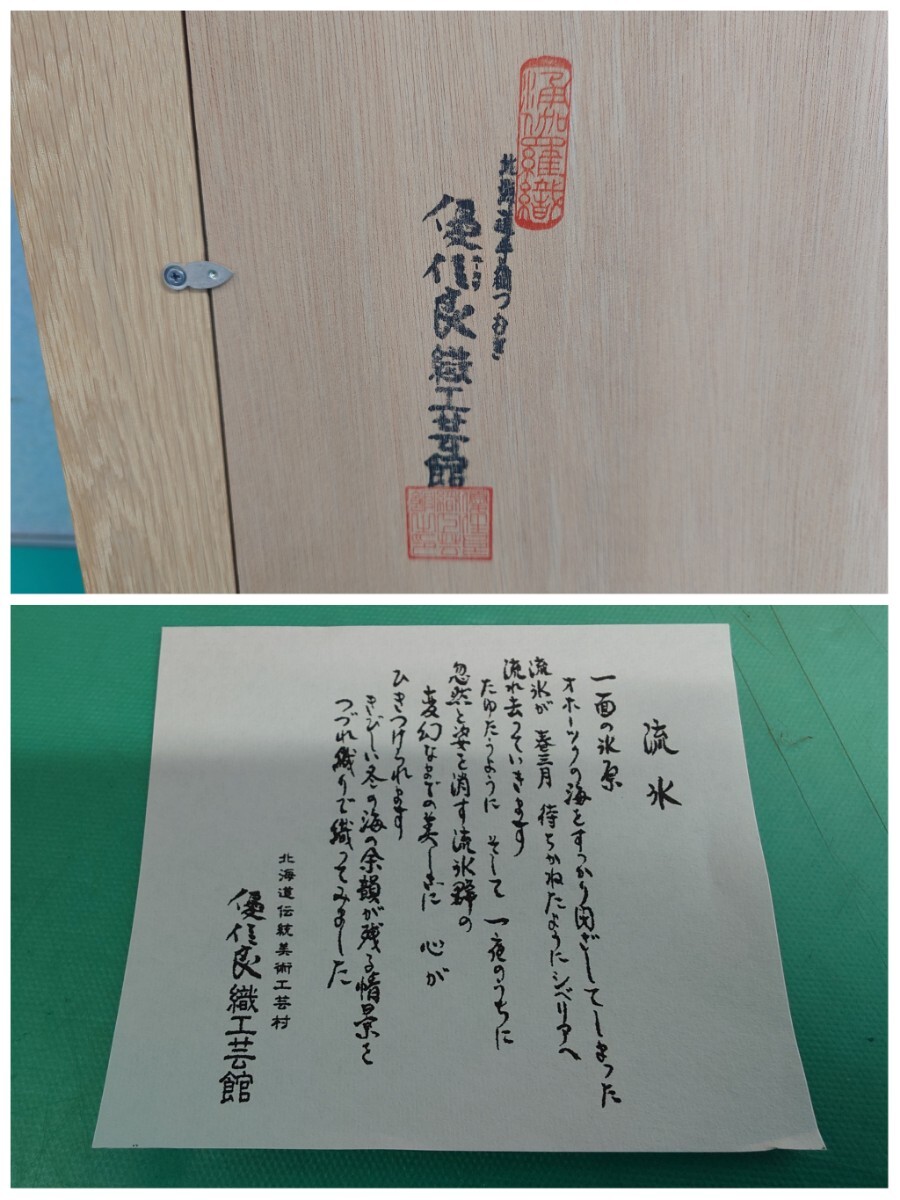 北海道手織つむぎ
優佳良織工芸館
流氷
一面の氷原
オホーツクの海をすっかり閉ざしてしまった
流氷が 春三月 待ちかねたようにシベリアへ
流れ去っていきます
たゆたうように そして 一夜のうちに
忽然と姿を消す流氷群の
変幻なまでの美しさに 心が
ひきつけられます
きびしい冬の海の余韻が残る情景を
つづれ織りで織ってみました
北海道伝統美術工芸村
優佳良織工芸館